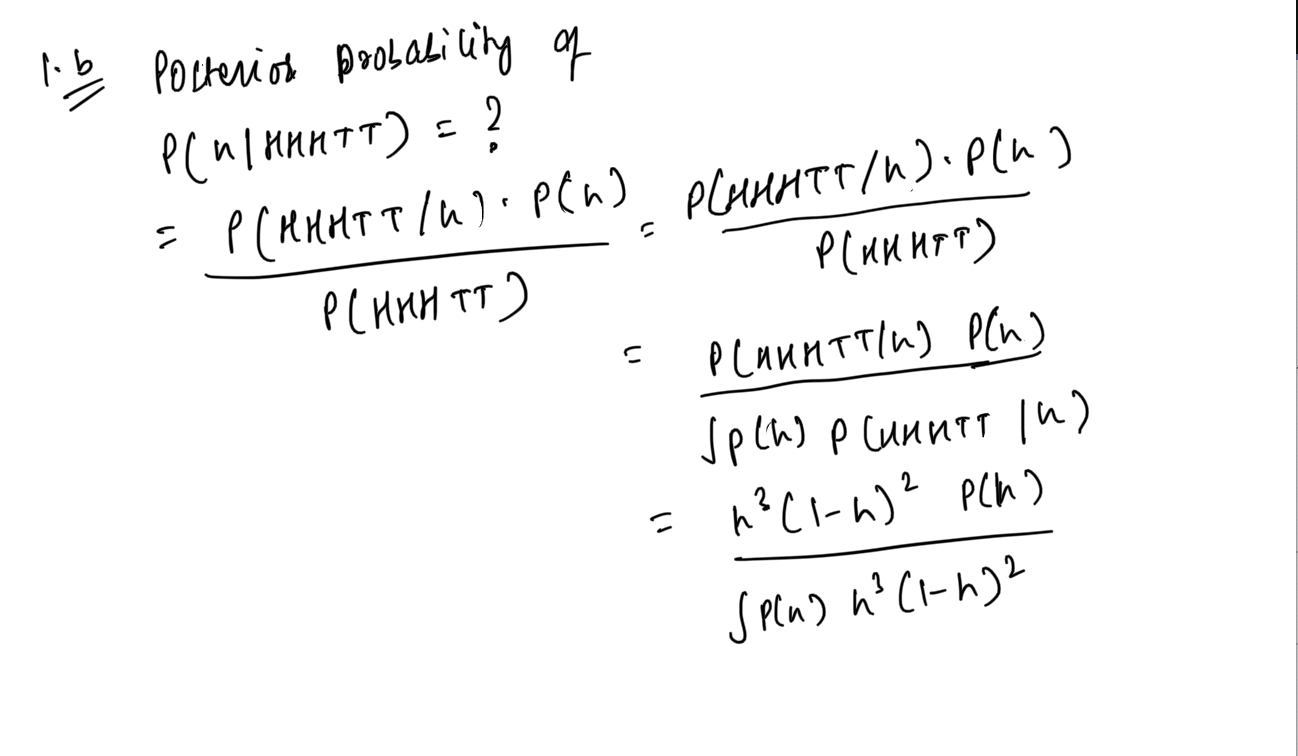 1.b Posterior probability of
P(h|HHHTT) = ?
= P(HHHTT/h) · P(h) / P(HHHTT) = P(HHHTT/h) · P(h) / P(HHHTT)
= P(HHHTT/h) P(h) / ∫P(h) P(HHHTT|h)
= h³(1-h)² P(h) / ∫P(h) h³(1-h)²